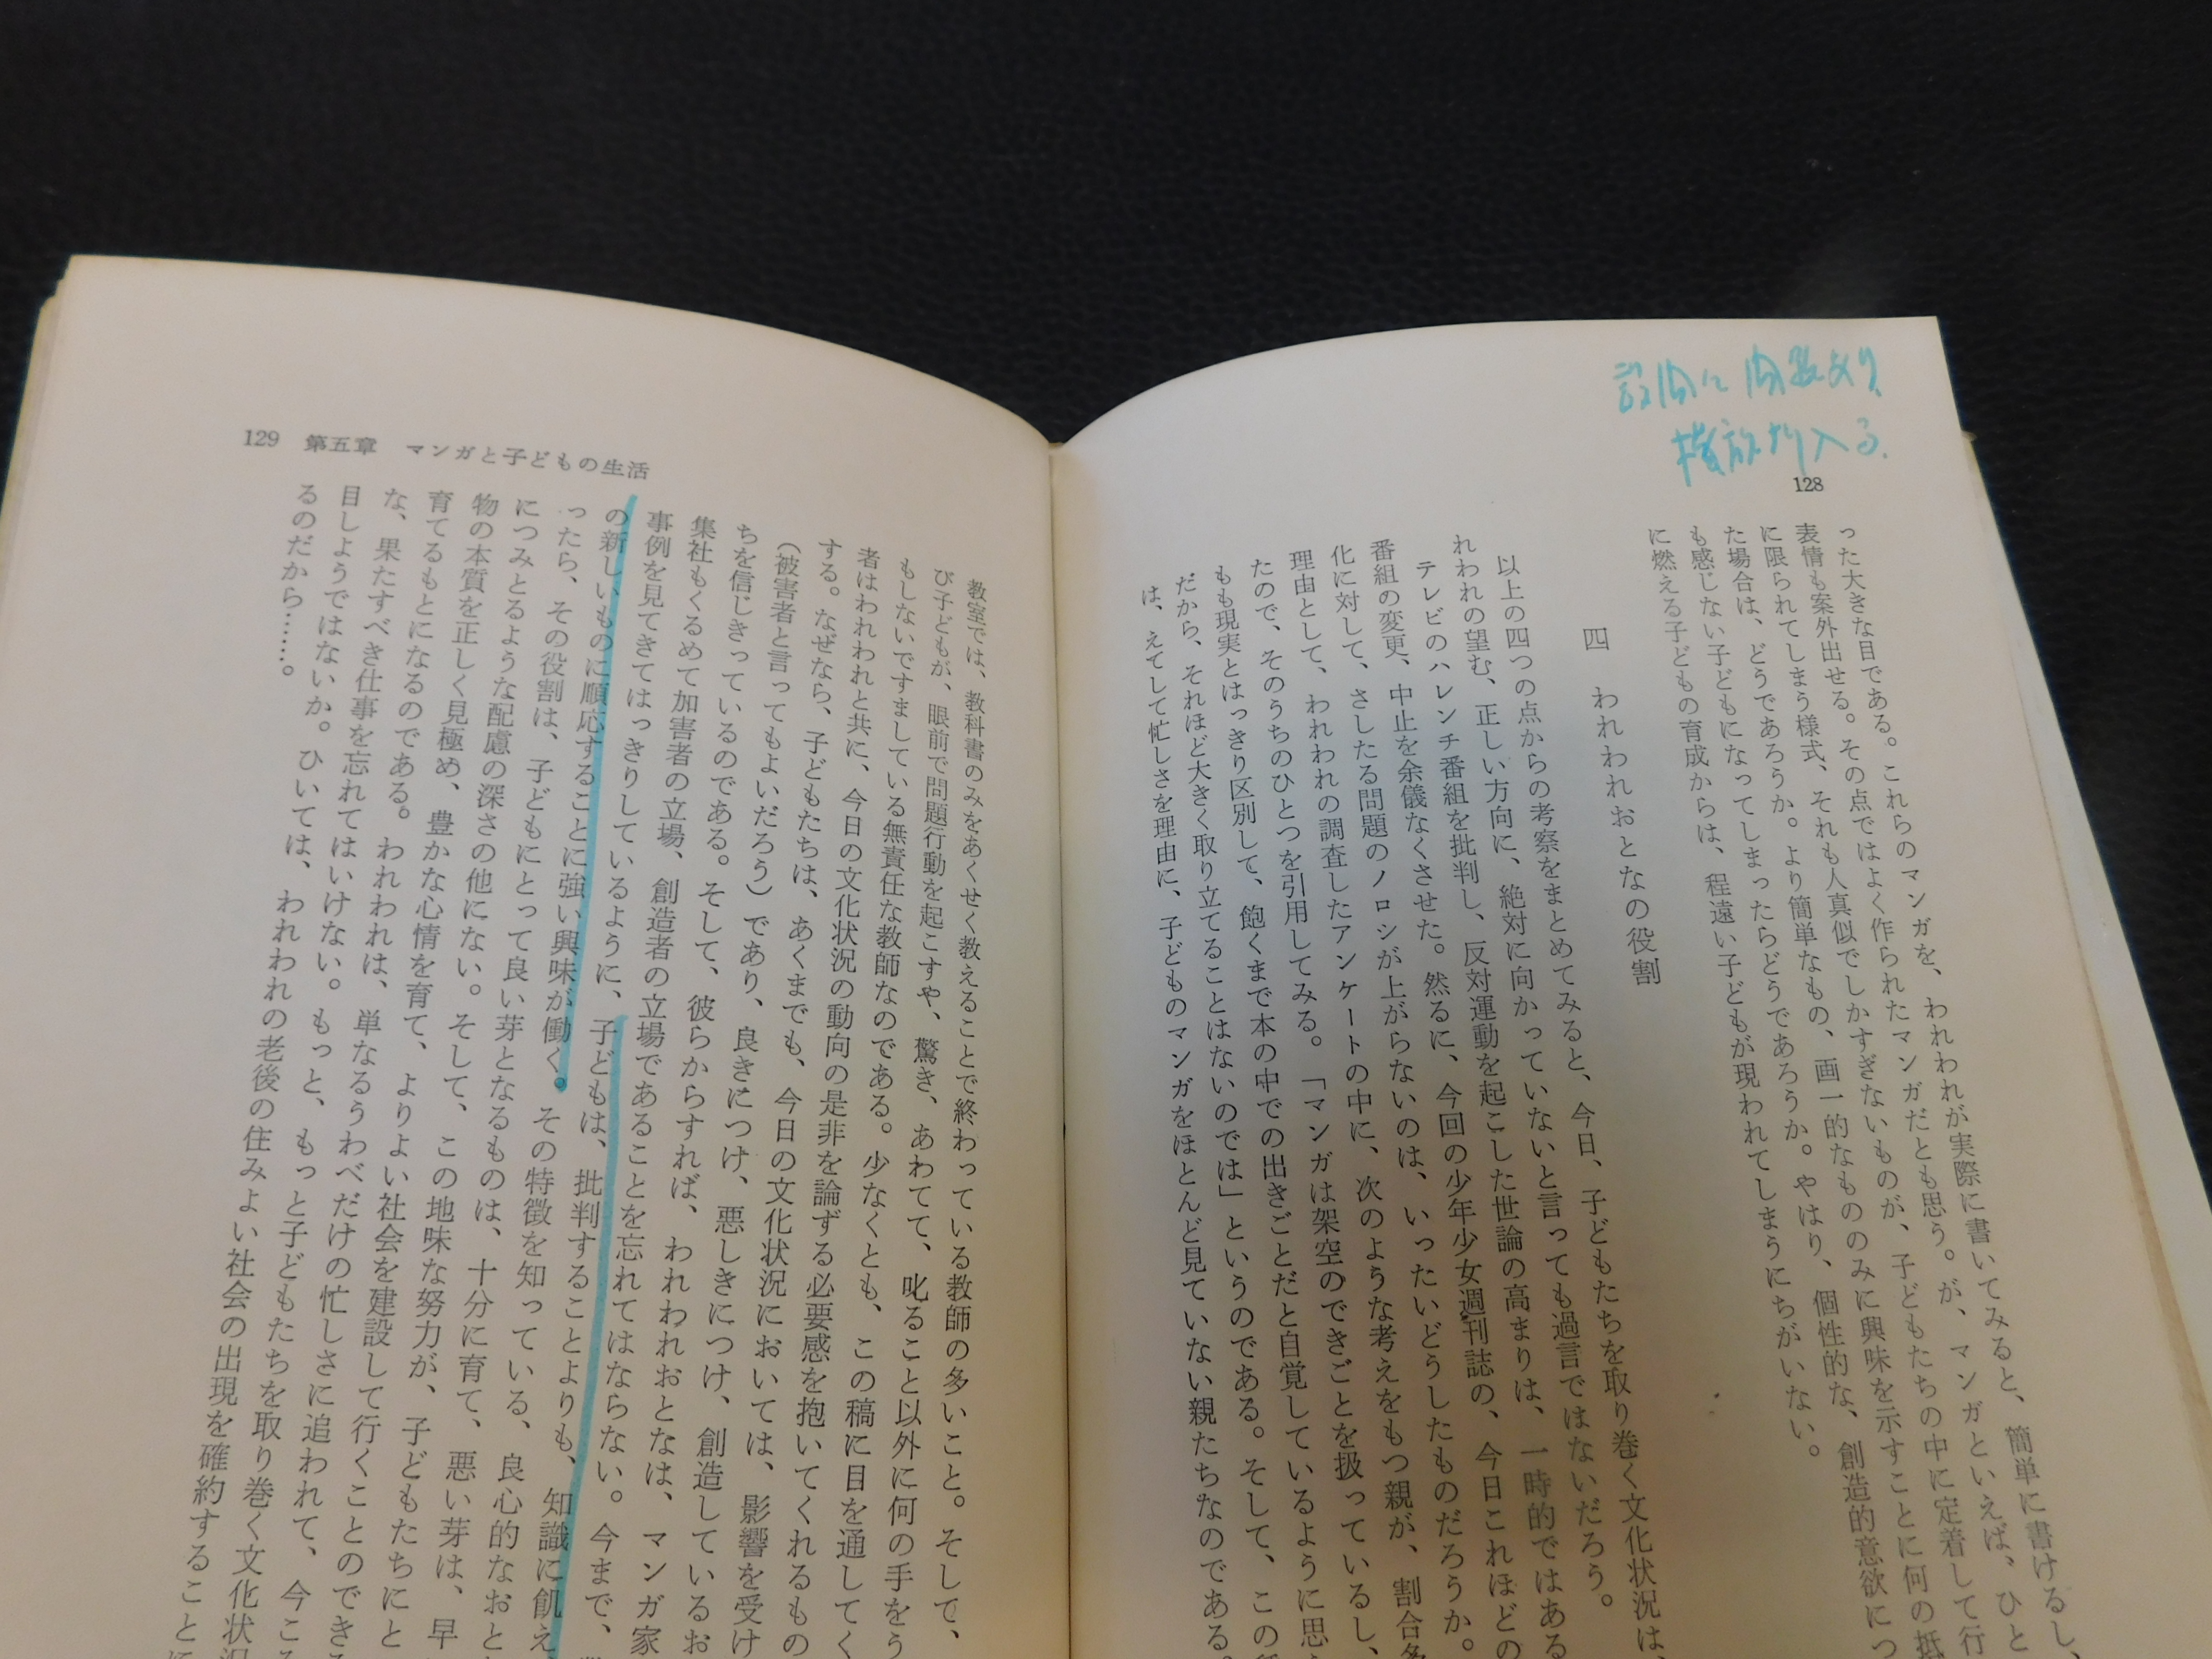 設問に問題あり、
128
った大きな目である。これらのマンガを、われわれが実際に書いてみると、簡単に書けるし、
表情も案外出せる。その点ではよく作られたマンガだとも思う。が、マンガといえば、ひと
に限られてしまう様式、それも人真似でしかすぎないものが、子どもたちの中に定着して行
た場合は、どうであろうか。より簡単なもの、画一的なもののみに興味を示すことに何の抵
も感じない子どもになってしまったらどうであろうか。やはり、個性的な、創造的意欲につ
に燃える子どもの育成からは、程遠い子どもが現われてしまうにちがいない。
四 われわれおとなの役割
以上の四つの点からの考察をまとめてみると、今日、子どもたちを取り巻く文化状況は、
れわれの望む、正しい方向に、絶対に向かっていないと言っても過言ではないだろう。
テレビのハレンチ番組を批判し、反対運動を起こした世論の高まりは、一時的ではある
番組の変更、中止を余儀なくさせた。然るに、今回の少年少女週刊誌の、今日これほどの
化に対して、さしたる問題のノロシが上がらないのは、いったいどうしたものだろうか。
理由として、われわれの調査したアンケートの中に、次のような考えをもつ親が、割合多
たので、そのうちのひとつを引用してみる。「マンガは架空のできごとを扱っているし、
もも現実とはっきり区別して、飽くまで本の中での出きごとだと自覚しているように思
だから、それほど大きく取り立てることはないのでは」というのである。そして、この
は、えてして忙しさを理由に、子どものマンガをほとんど見ていない親たちなのである。
129 第五章 マンガと子どもの生活
教室では、教科書のみをあくせく教えることで終わっている教師の多いこと。そして、
び子どもが、眼前で問題行動を起こすや、驚き、あわてて、叱ること以外に何の手をう
もしないですましている無責任な教師なのである。少なくとも、この稿に目を通してく
者はわれわれと共に、今日の文化状況の動向の是非を論ずる必要感を抱いてくれるもの
する。なぜなら、子どもたちは、あくまでも、今日の文化状況においては、影響を受け
（被害者と言ってもよいだろう）であり、良きにつけ、悪しきにつけ、創造しているお
ちを信じきっているのである。そして、彼らからすれば、われわれおとなは、マンガ家
集社もくるめて加害者の立場、創造者の立場であることを忘れてはならない。今まで、
事例を見てきてはっきりしているように、子どもは、批判することよりも、知識に飢え
の新しいものに順応することに強い興味が働く。その特徴を知っている、良心的なおと
ったら、その役割は、子どもにとって良い芽となるものは、十分に育て、悪い芽は、早
につみとるような配慮の深さの他にない。そして、この地味な努力が、子どもたちにと
物の本質を正しく見極め、豊かな心情を育て、よりよい社会を建設して行くことのでき
育てるもとになるのである。われわれは、単なるうわべだけの忙しさに追われて、今こ
な、果たすべき仕事を忘れてはいけない。もっと、もっと子どもたちを取り巻く文化状況
目しようではないか。ひいては、われわれの老後の住みよい社会の出現を確約すること
るのだから……。